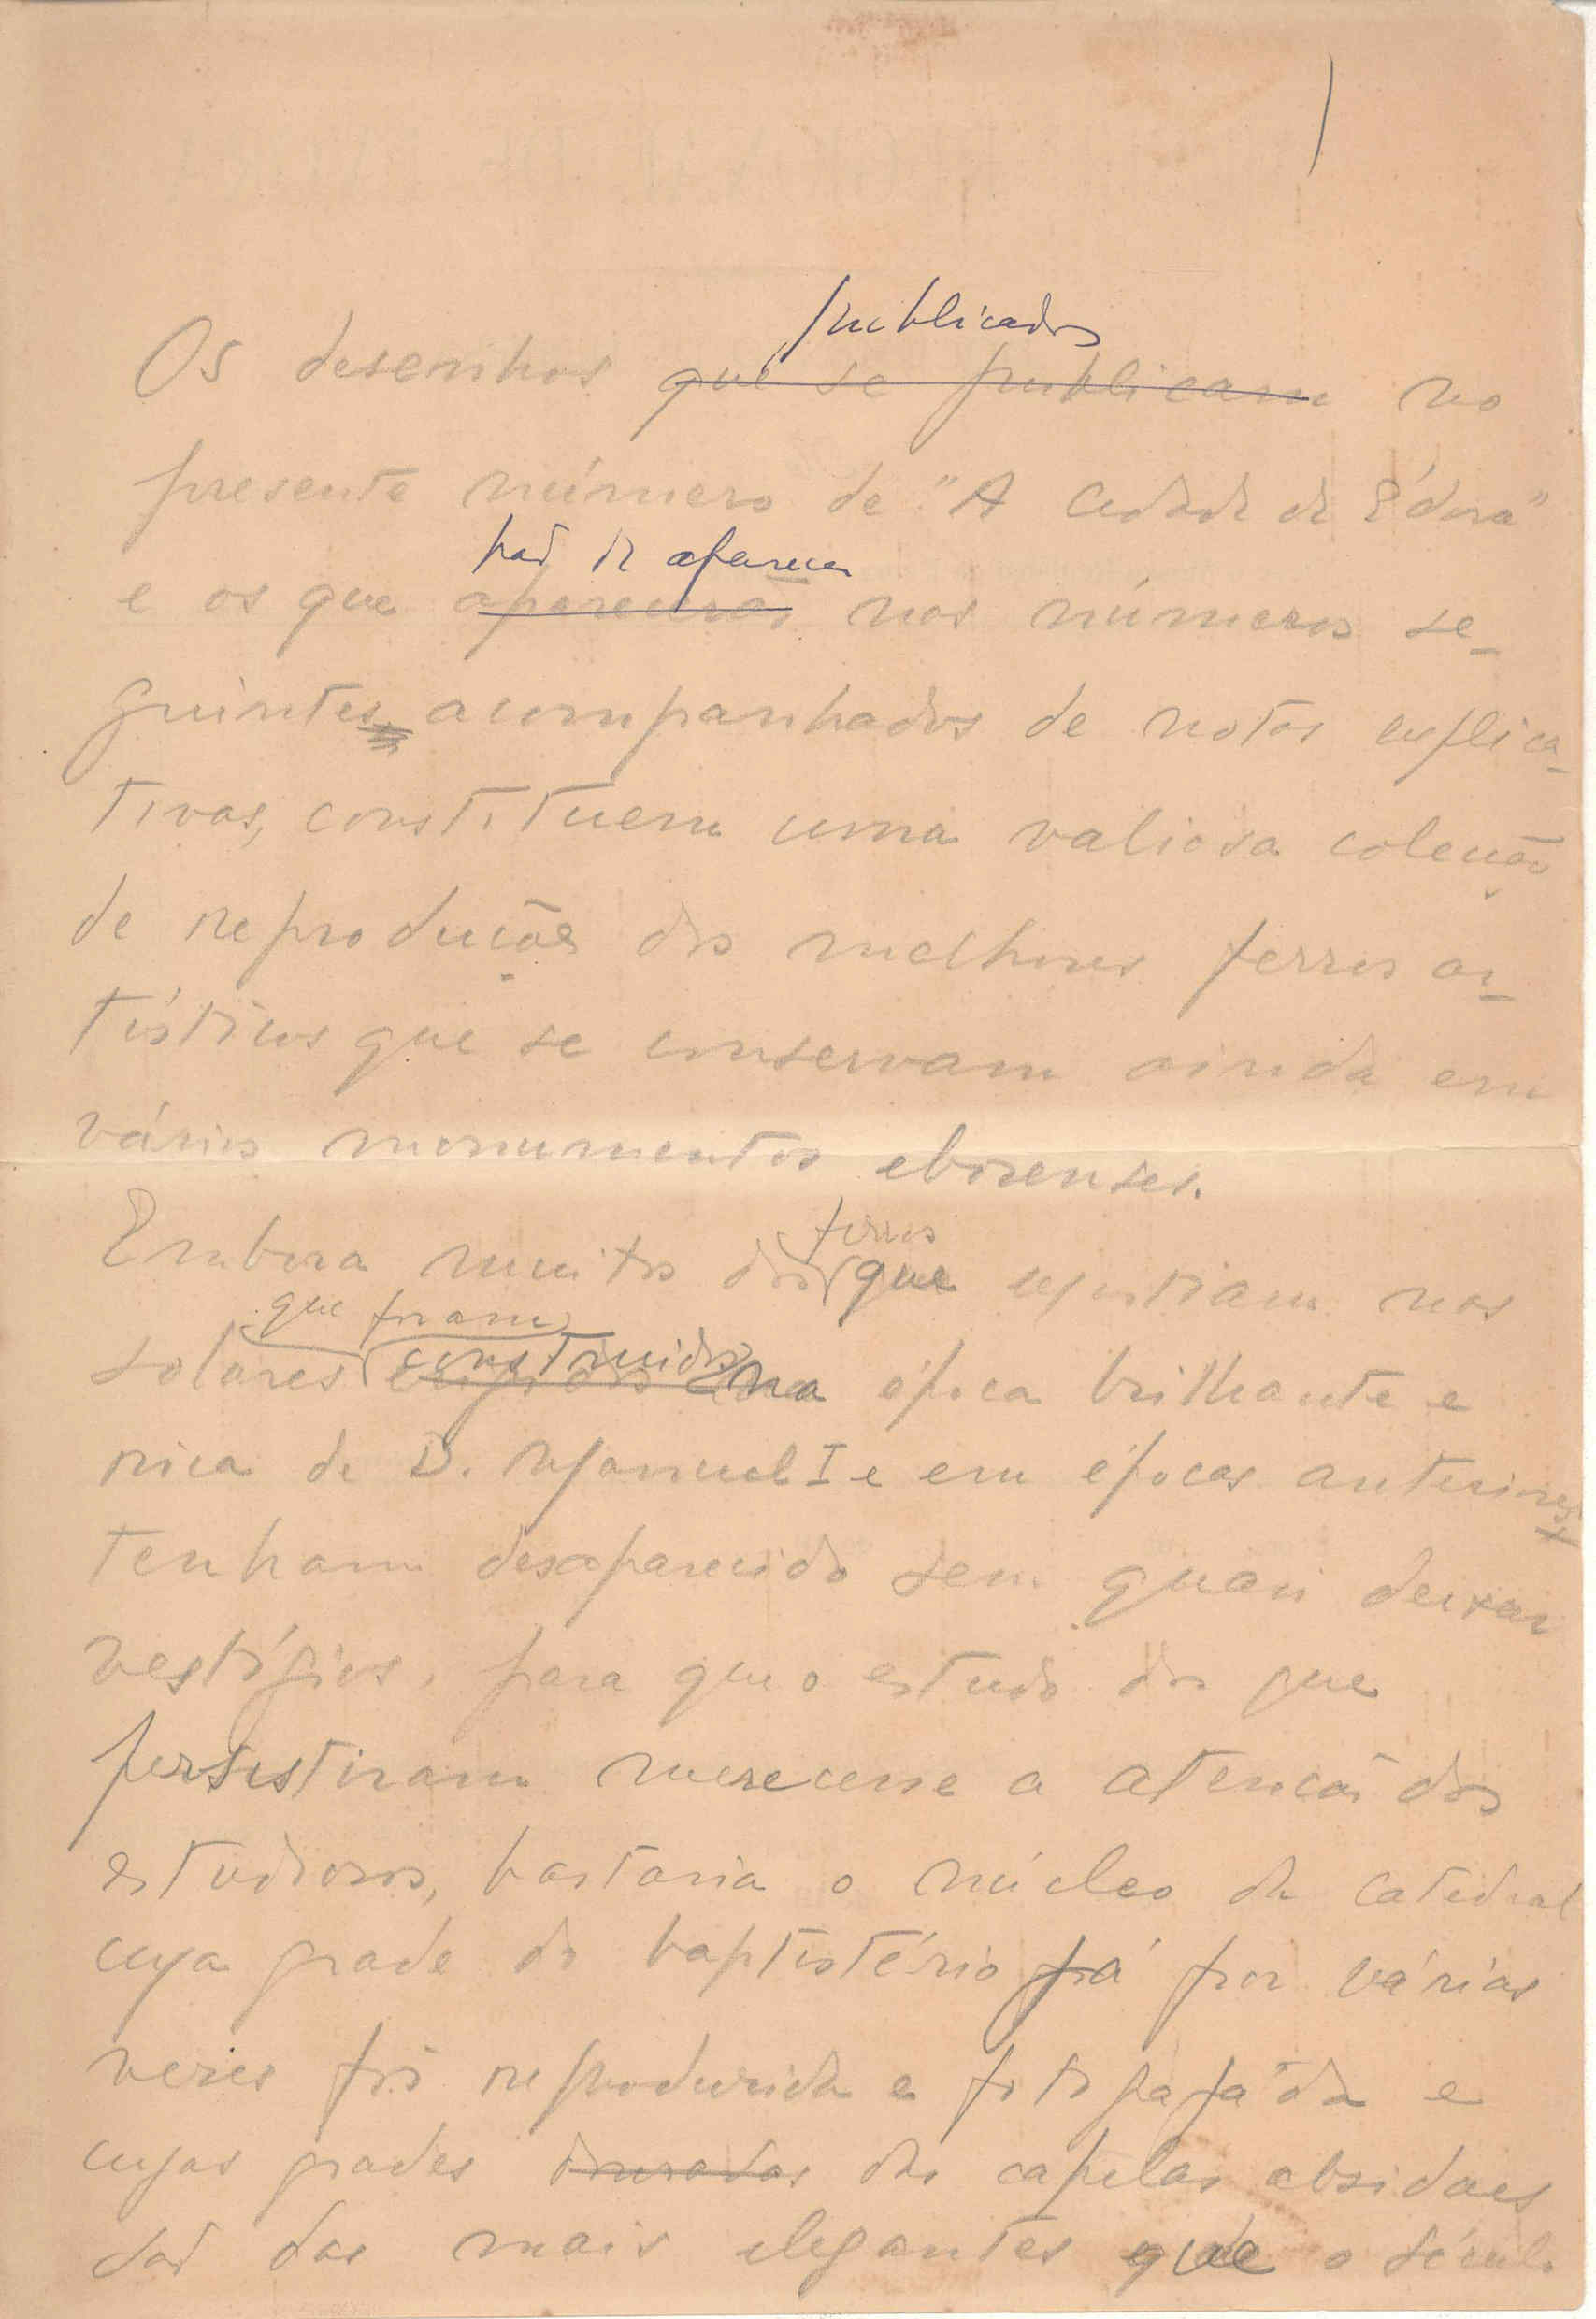 publicados
Os desenhos que se publicam no
presente número de "A Cidade de Évora"
hão de aparecer
e os que aparecerão nos números se-
guintes acompanhados de notas explica-
tivas, constituem uma valiosa coleção
de reproduções dos melhores ferros ar-
tísticos que se conservam ainda em
vários monumentos eborenses.
ferros
Embora muitos dos que existiam nos
que foram
construidos
solares erigidos na época brilhante e
rica de D. Manuel I e em épocas anteriores
tenham desaparecido sem quasi deixar
vestígios, para que o estudo dos que
persistiram merecesse a atenção dos
estudiosos, bastaria o núcleo da catedral
cuja grade do baptistério já por várias
vezes foi reproduzida e
cujas grades douradas das capelas absidaes
são das mais elegantes que o século